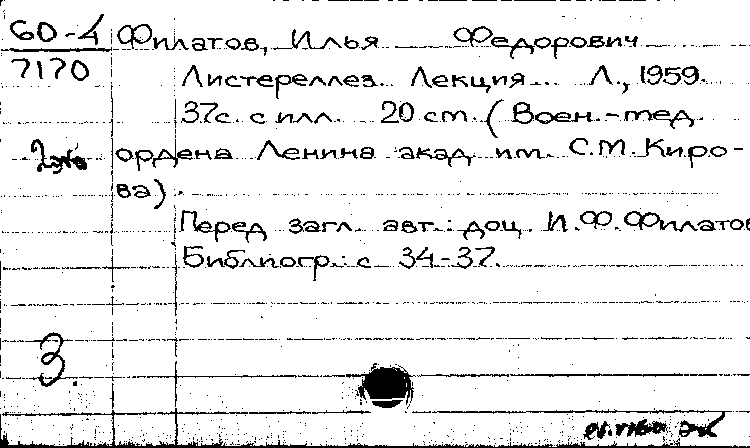 60-4 Филатов, Илья Федорович
7170 Листереллез. Лекция... Л., 1959.
37с. с илл. 20 cm. (Воен.-мед.
2экз ордена Ленина акад. им. С.М.Киро-
ва).
Перед загл. авт.: доц. И.Ф.Филатов
Библиогр.: с 34-37.
3.